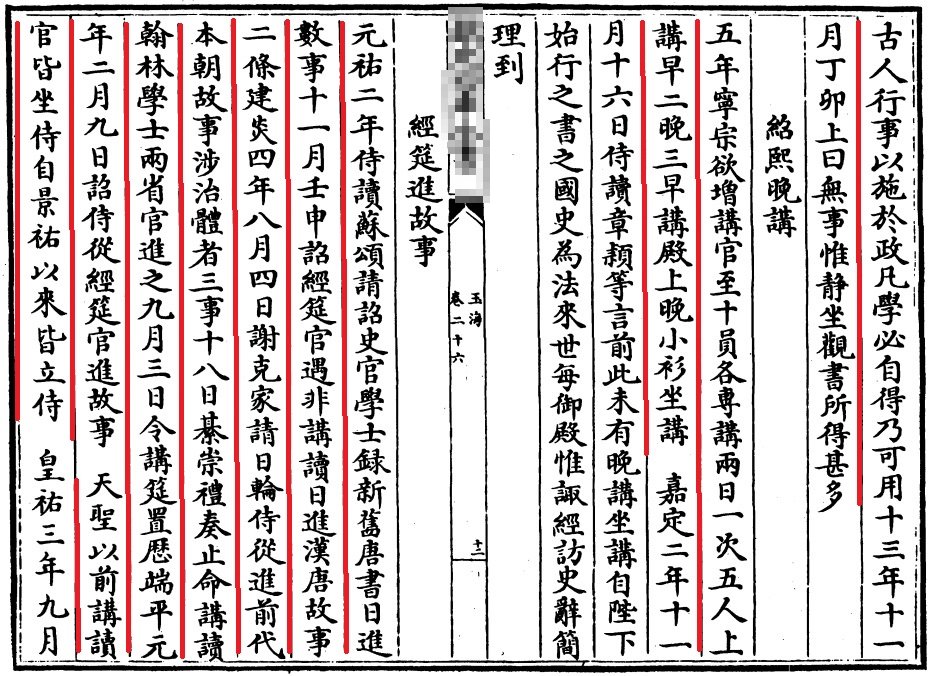 古人行事以施於政凡學必自得乃可用十三年十一
月丁卯上曰無事惟静坐觀書所得甚多
紹熙晚講
五年寧宗欲增講官至十員各専講兩日一次五人上
講早二晚三早講殿上晚小衫坐講 嘉定二年十一
月十六日侍讀章穎等言前此未有晚講坐講自陛下
始行之書之國史為法來世每御殿惟諏經訪史辭簡
理到
玉海
卷二十六
十二
經筵進故事
元祐二年侍讀蘇頌請詔史官學士録新舊唐書日進
數事十一月壬申詔經筵官遇非講讀日進漢唐故事
二條建炎四年八月四日謝克家請日輪侍從進前代
本朝故事渉治體者三事十八日綦崇禮奏止命講讀
翰林學士兩省官進之九月三日令講筵置歷端平元
年二月九日詔侍從經筵官進故事 天聖以前講讀
官皆坐侍自景祐以來皆立侍 皇祐三年九月